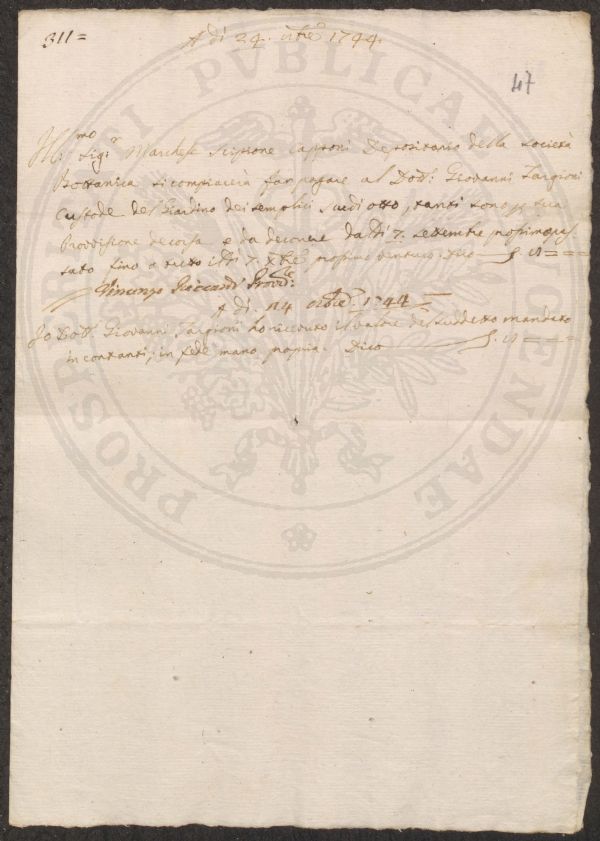 311=
A dì 24. 8bre 1744.
47
Ill:mo Sig:r Marchese Scipione Capponi Depositario della Società
Bottanica si compiacerà far pagare al Dott: Giovanni Targioni
Custode del Giardino dei semplici scudi otto, tanti sono per sua
Provvisione decorsa e da decorrere dal dì 7. settembre prossimo pas
sato fino a tutto il dì 7. Xbre prossimo venturo. dico
Vincenzo Riccardi Provv:re
A dì 24 8bre 1744
Io Dott. Giovanni Targioni ho ricevuto il valore del suddetto mandato
in contanti; in fede mano propria. Dico
PROSPERITATI PVBLICAE AVGENDAE